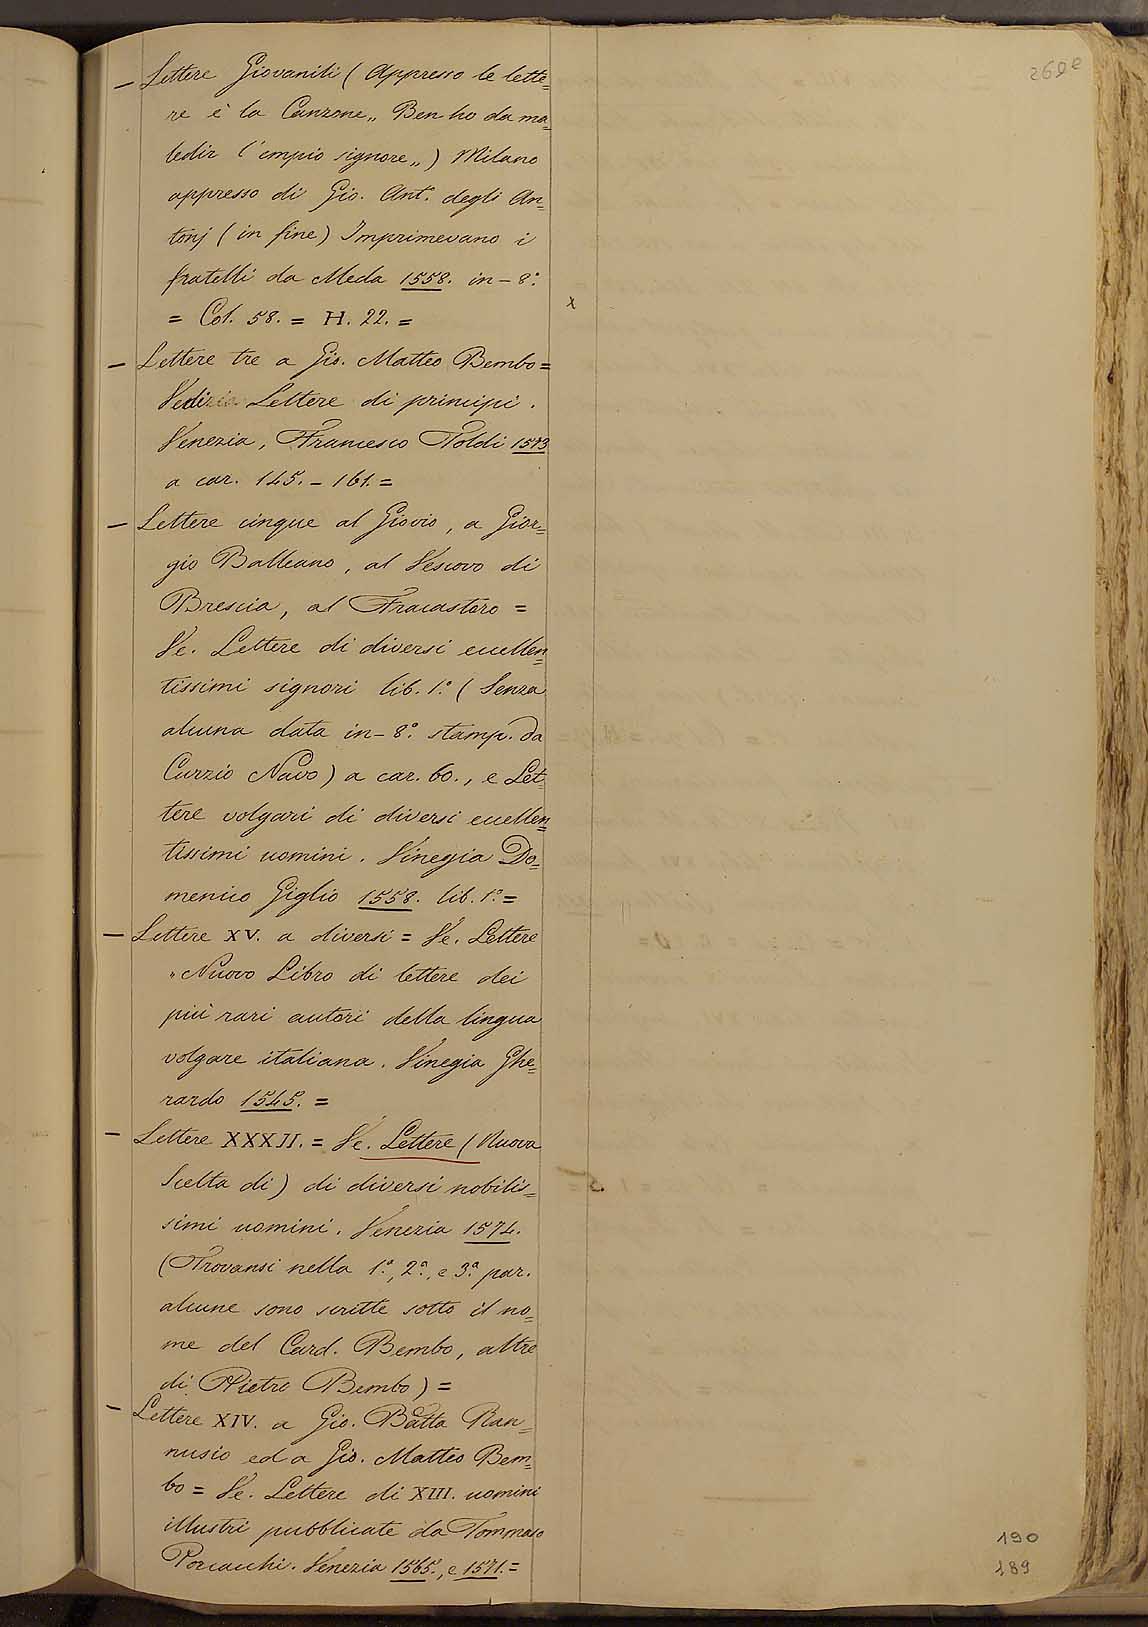 269e
— Lettere Giovanili (Appresso le lette=
re è la Canzone „ Ben ho da ma=
ledir l'empio signore „) Milano
appresso di Gio. Ant. degli An=
tonj (in fine) Imprimevano i
fratelli da Meda 1558. in-8.°
= Col. 58. = H. 22. =
x
— Lettere tre a Gio. Matteo Bembo =
Vedi Lettere di principi.
Venezia, Francesco Toldi 1573
a car. 145. - 161. =
— Lettere cinque al Giovio, a Gior=
gio Balleano, al Vescovo di
Brescia, al Fracastoro =
Ve. Lettere di diversi eccellen=
tissimi signori lib. 1.° (Senza
alcuna data in-8.° stamp. da
Curzio Navo) a car. 60., e Let=
tere volgari di diversi eccellen=
tissimi uomini. Vinegia Do=
menico Giglio 1558. lib. 1.° =
— Lettere XV. a diversi = Ve. Lettere
„ Nuovo Libro di lettere dei
più rari autori della lingua
volgare italiana. Vinegia Ghe=
rardo 1545. =
— Lettere XXXII. = Ve. Lettere (Nuova
Scelta di) di diversi nobilis=
simi uomini. Venezia 1574.
(Trovansi nella 1.ª, 2.ª, e 3.ª par.
alcune sono scritte sotto il no=
me del Card. Bembo, altre
di Pietro Bembo) =
— Lettere XIV. a Gio. Batta Ran=
nusio ed a Gio. Matteo Bem=
bo = Ve. Lettere di XIII. uomini
illustri pubblicate da Tommaso
Porcacchi. Venezia 1565., e 1571. =
190
189